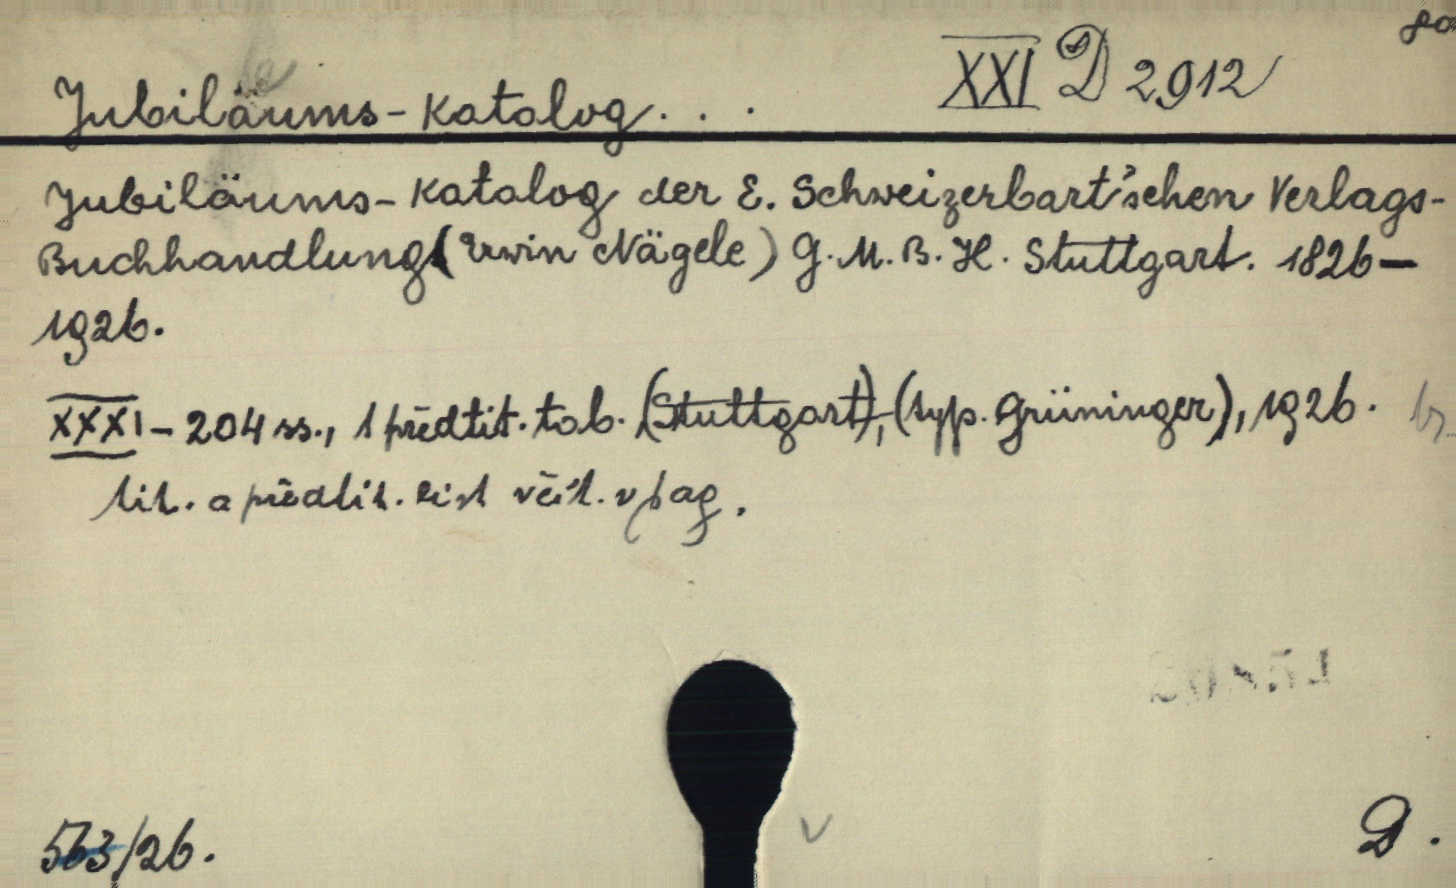 8o
XXI D 2912
Jubiläums-Katalog. . .
Jubiläums-Katalog der E. Schweizerbart'schen Verlags-
Buchhandlung (Erwin Nägele) G.M.B.H. Stuttgart. 1826—
1926.
XXXI - 204 ss., 1 předtit. tab. (Stuttgart), (typ. Grüninger), 1926. br.
tit. a předtit. list včít. v pag.
563/26.
D.